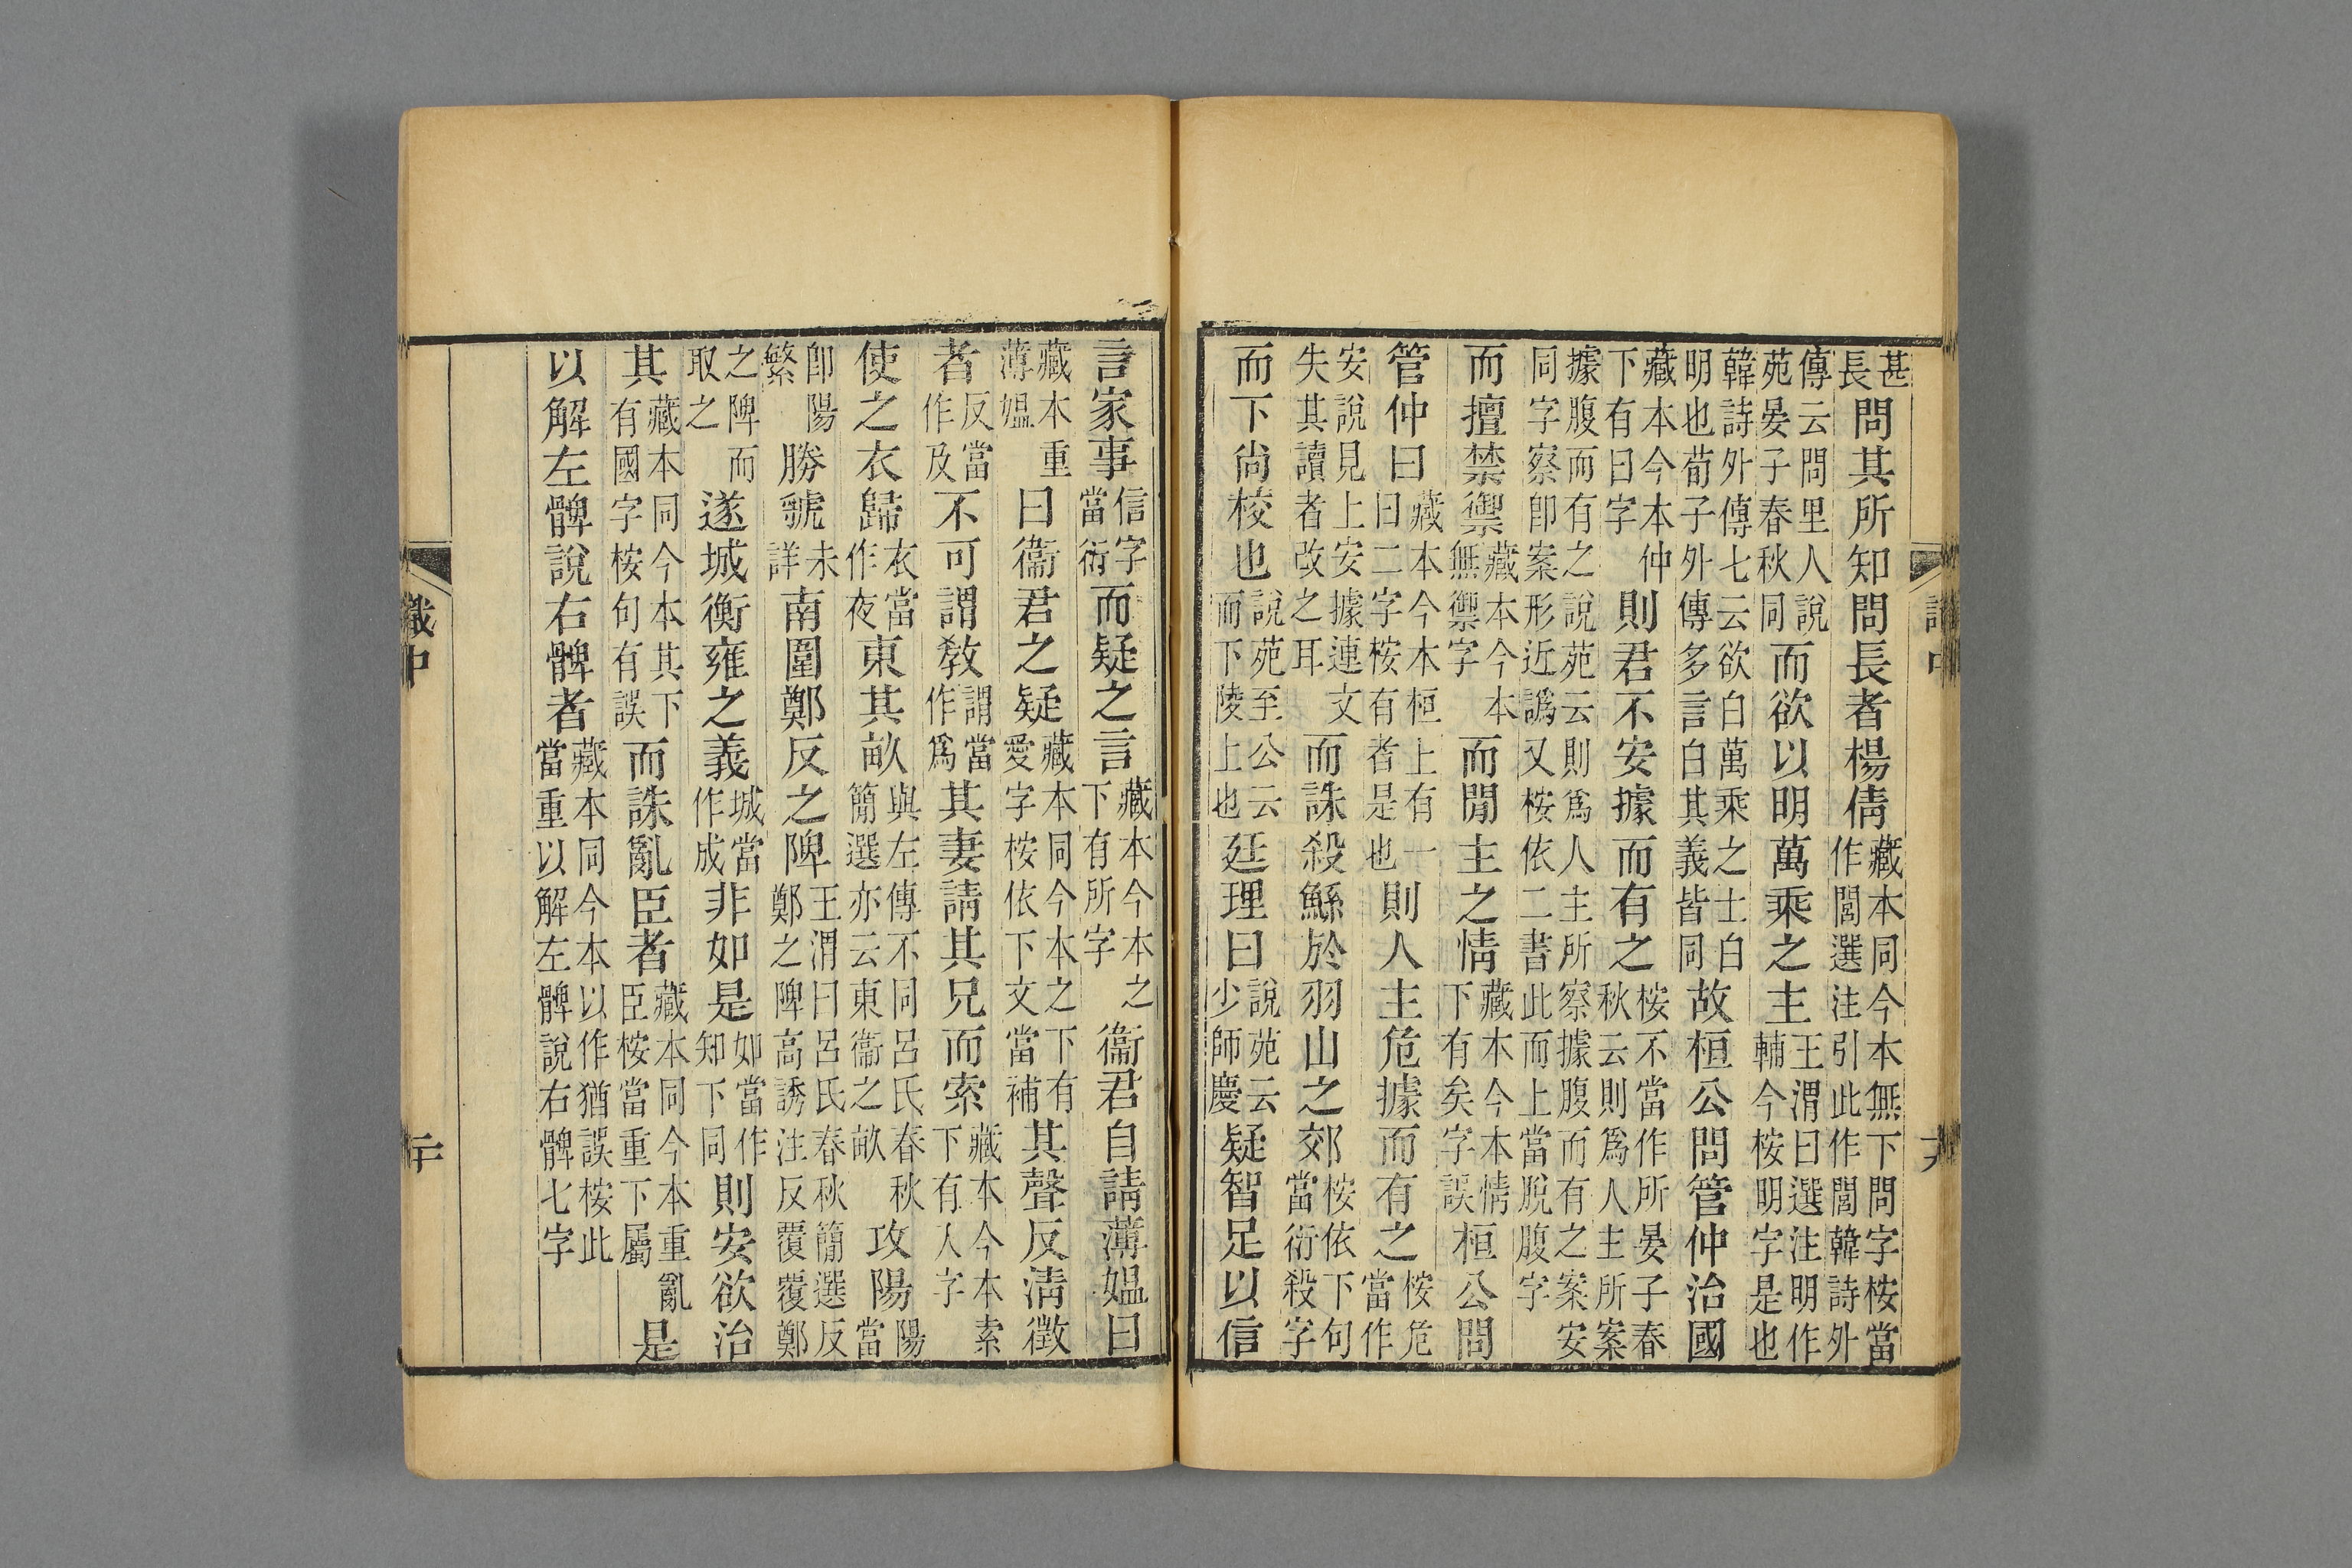 甚長問其所知問長者楊倩藏本同今本無下問字桉當作閭選注引此作閭韓詩外
傳云問里人說苑晏子春秋同而欲以明萬乘之主王渭曰選注明作輔今桉明字是也
韓詩外傳七云欲白萬乘之士白明也荀子外傳多言白其義皆同故桓公問管仲治國
藏本今本仲下有曰字則君不安據而有之桉不當作所晏子春秋云則爲人主所案
據腹而有之說苑云則爲人主所察據腹而有之案安同字察卽案形近譌又桉依二書此而上當脫腹字
而擅禁禦藏本今本無禦字而閒主之情藏本今本情下有矣字誤桓公問
管仲曰藏本今本桓上有一曰二字桉有者是也則人主危據而有之桉危當作
安說見上安據連文失其讀者改之耳而誅殺鯀於羽山之郊桉依下句當衍殺字
而下尚校也說苑至公云而下陵上也廷理曰說苑云少師慶疑智足以信
言家事信字當衍而疑之言藏本今本之下有所字衞君自請薄媼曰
藏本重薄媼曰衞君之疑藏本同今本之下有愛字桉依下文當補其聲反淸徵
者反當作及不可謂敎謂當作爲其妻請其兄而索藏本今本索下有人字
使之衣歸衣當作夜東其畝與左傳不同呂氏春秋簡選亦云東衞之畝攻陽陽當
卽陽繁勝虢未詳南圍鄭反之陴王渭曰呂氏春秋簡選反鄭之陴高誘注反覆覆鄭
之陴而取之遂城衡雍之義城當作成非如是如當作知下同則安欲治
其藏本同今本其下有國字桉句有誤而誅亂臣者藏本同今本重亂臣桉當重下屬是
以解左髀說右髀者藏本同今本以作猶誤桉此當重以解左髀說右髀七字
識中 二十